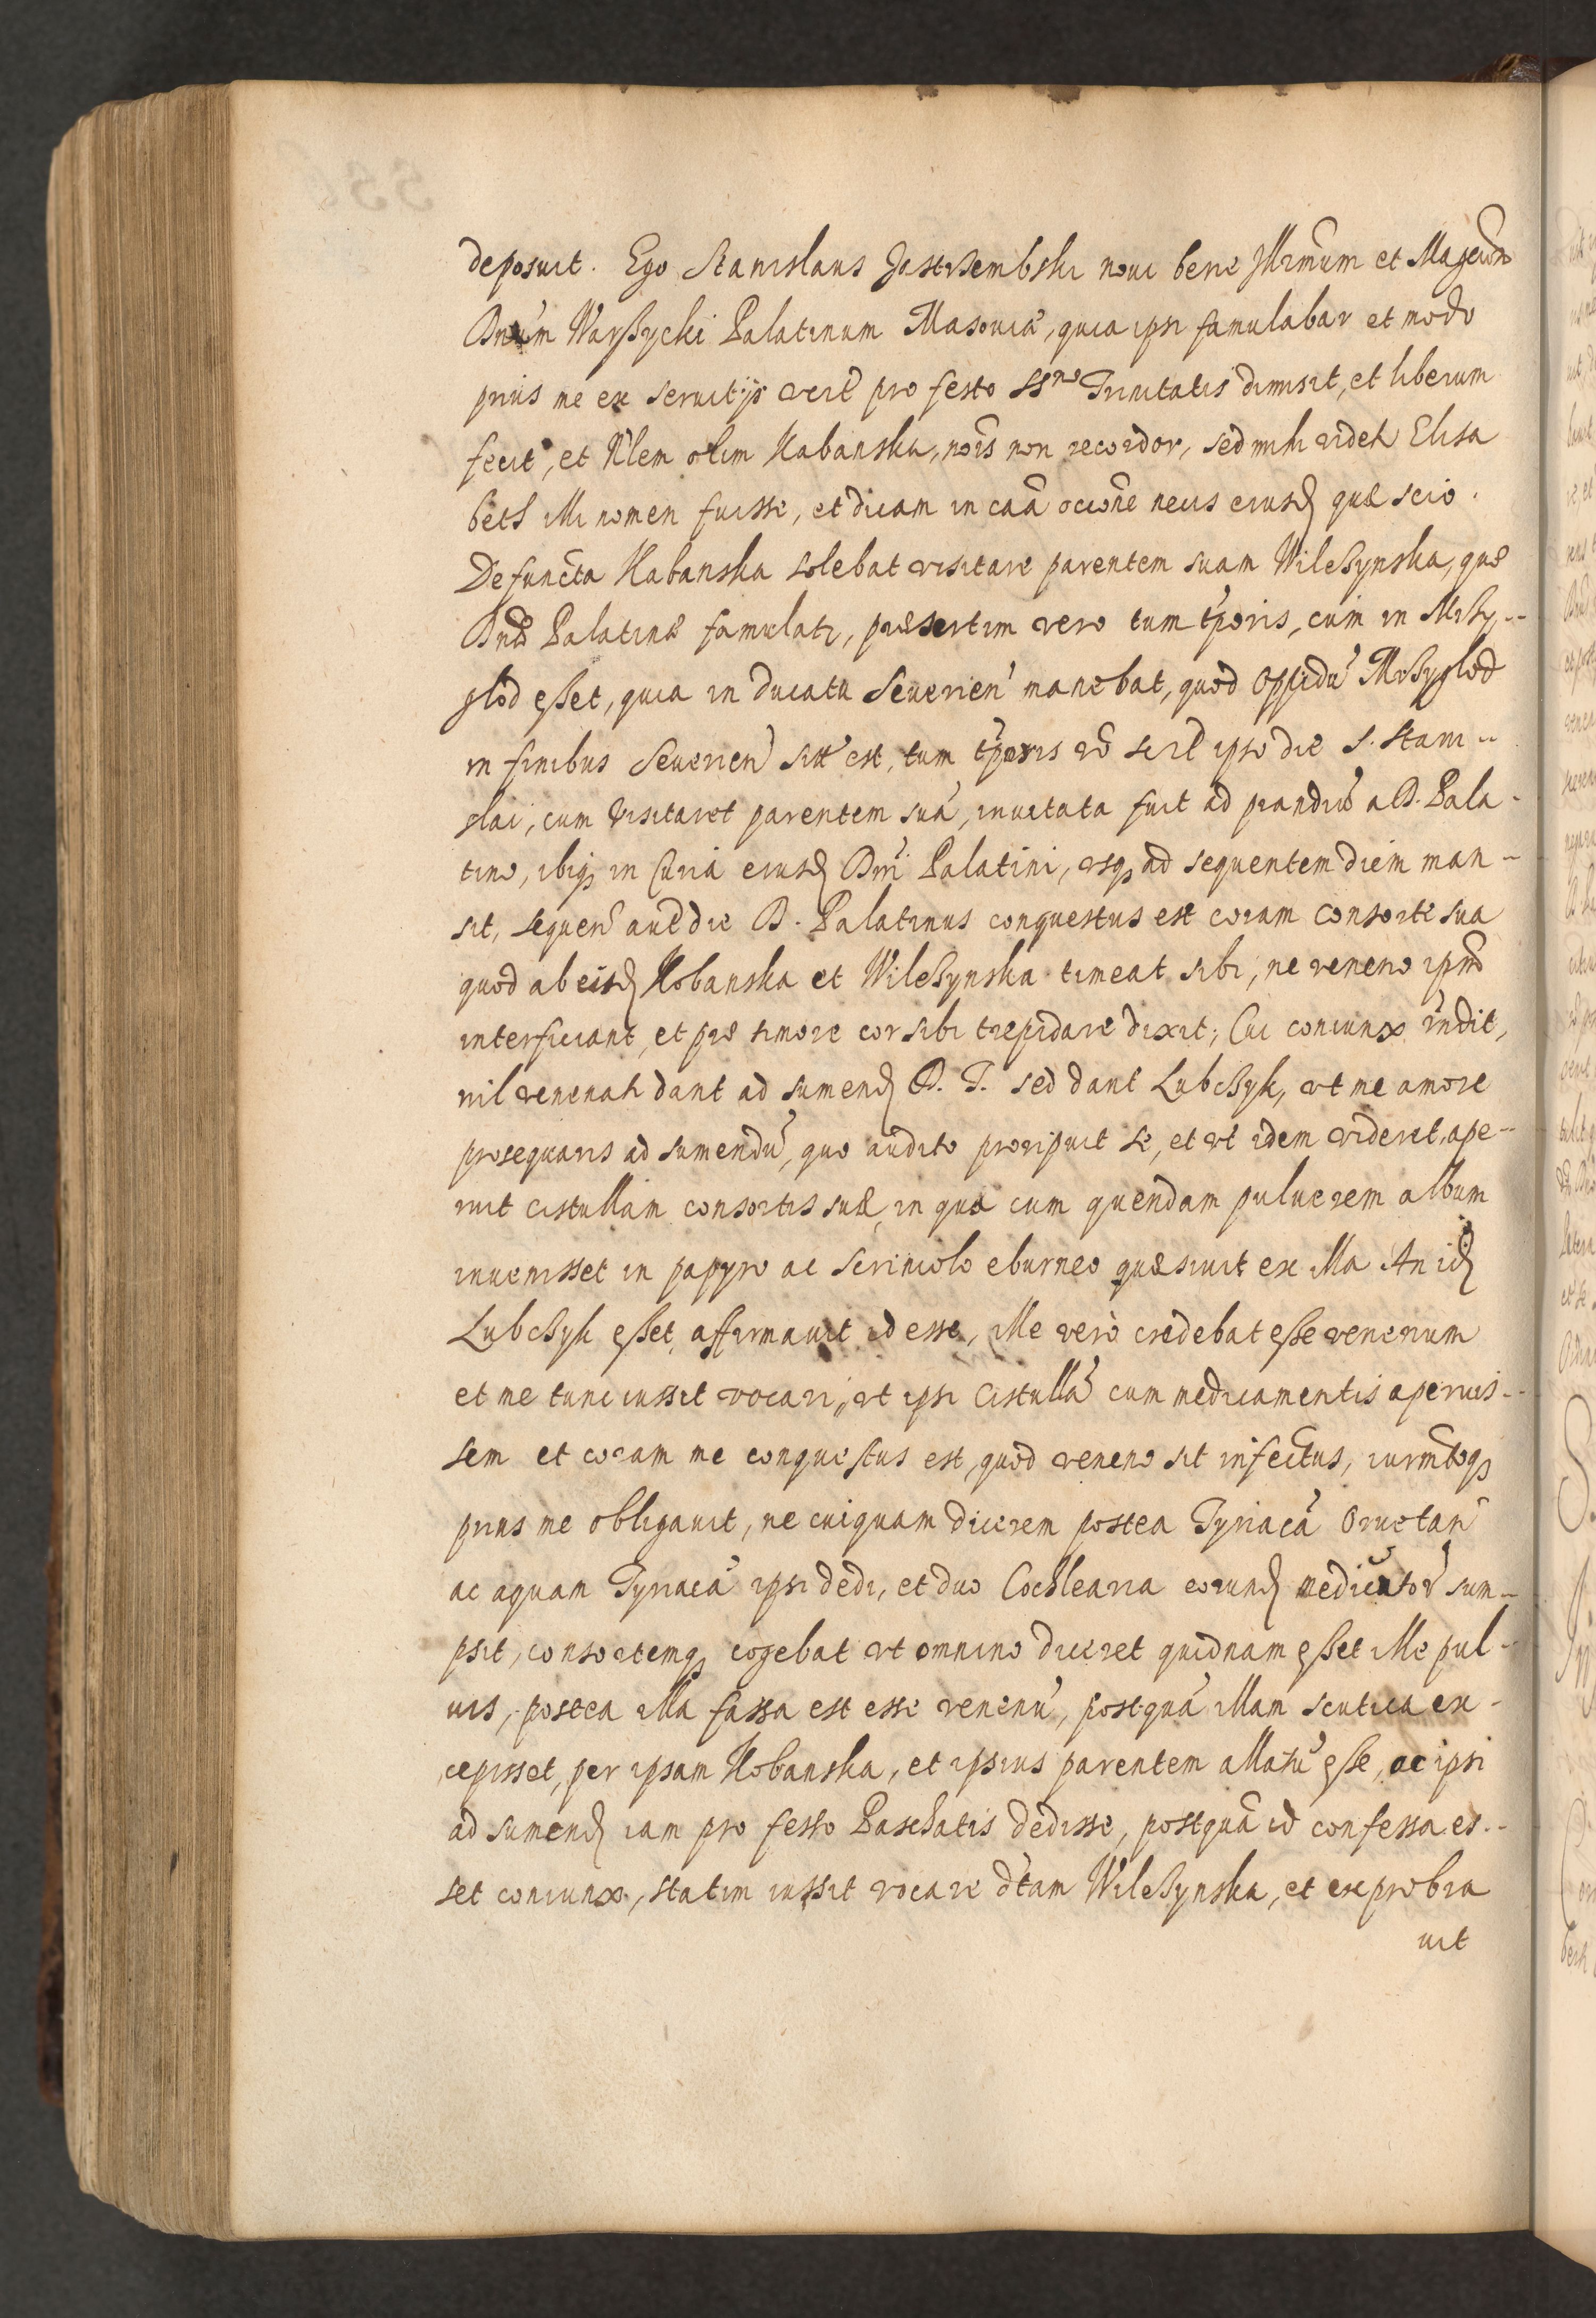 deposuit. Ego Stanislaus Jastrßembski noui bene Illrimum et Magcum
Dnum Warßycki Palatinum Masouiæ, quia ipsi famulabar et modo
prius me ex seruitijs pro festo SSme Trinitatis dimisit, et liberum
fecit, et Nlem olim Kabanska, nois non recordor, sed mihi videtr Elisa
beth illi nomen fuisse, et dicam in caa occione necis eiusd quæ scio.
Defuncta Kabanska solebat visitare parentem suam Wilcßynska, quæ
Dnæ Palatinæ famulatr, præsertim vero tum tporis, cum in Mrßy--
glod eßet, quia in ducatu Seuerien manebat, quod Oppidu Mrßyglod
in finibus Seuerien sitt est, tum tporis vo scil ipso die S. Stani--
slai, cum visitaret parentem sua, inuitata fuit ad prandiu a D. Pala-
tino, ibiq in Curia eiusd Dni Palatini, vsq ad sequentem diem man-
sit, sequen aute die D. Palatinus conquestus est coram consorte sua
quod ab eisd Kobanska et Wilcßynska timeat sibi, ne veneno ipm
interficiant, et præ timore cor sibi trepidare dixit; Cui coniunx rndit,
nil venenati dant ad sumend D. T. sed dant Lubcßyk, vt me amore
prosequaris ad sumendu, quo audito proripuit se, et vt idem videret, ape--
ruit cistullam consortis suæ, in qua cum quendam puluerem album
inuenisset in papyro ac scriniolo eburneo quæsiuit ex illa An id
Lubcßyk eßet, affirmauit id esse, ille vero credebat eße venenum
et me tunc iussit vocari, vt ipsi Cistulla cum medicamentis aperuis--
sem et coram me conquestus est, quod veneno sit infectus, iurmtoq
prius me obligauit, ne cuiquam dicerem postea Tyriaca Oruetan
ac aquam Tyriaca ipsi dedi, et duo Cochlearia eorund medicator sum-
psit, consortemq cogebat vt omnino diceret quidnam eßet ille pul-
uis, postea illa fassa est esse venenu, postqua illam scutica ex-
cepisset, per ipsam Kobanska, et ipsius parentem allatu eße, ac ipsi
ad sumend iam pro festo Paschatis dedisse, postqua id confessa es--
set coniunx, statim iussit vocare dtam Wilcßynska, et exprobra
uit